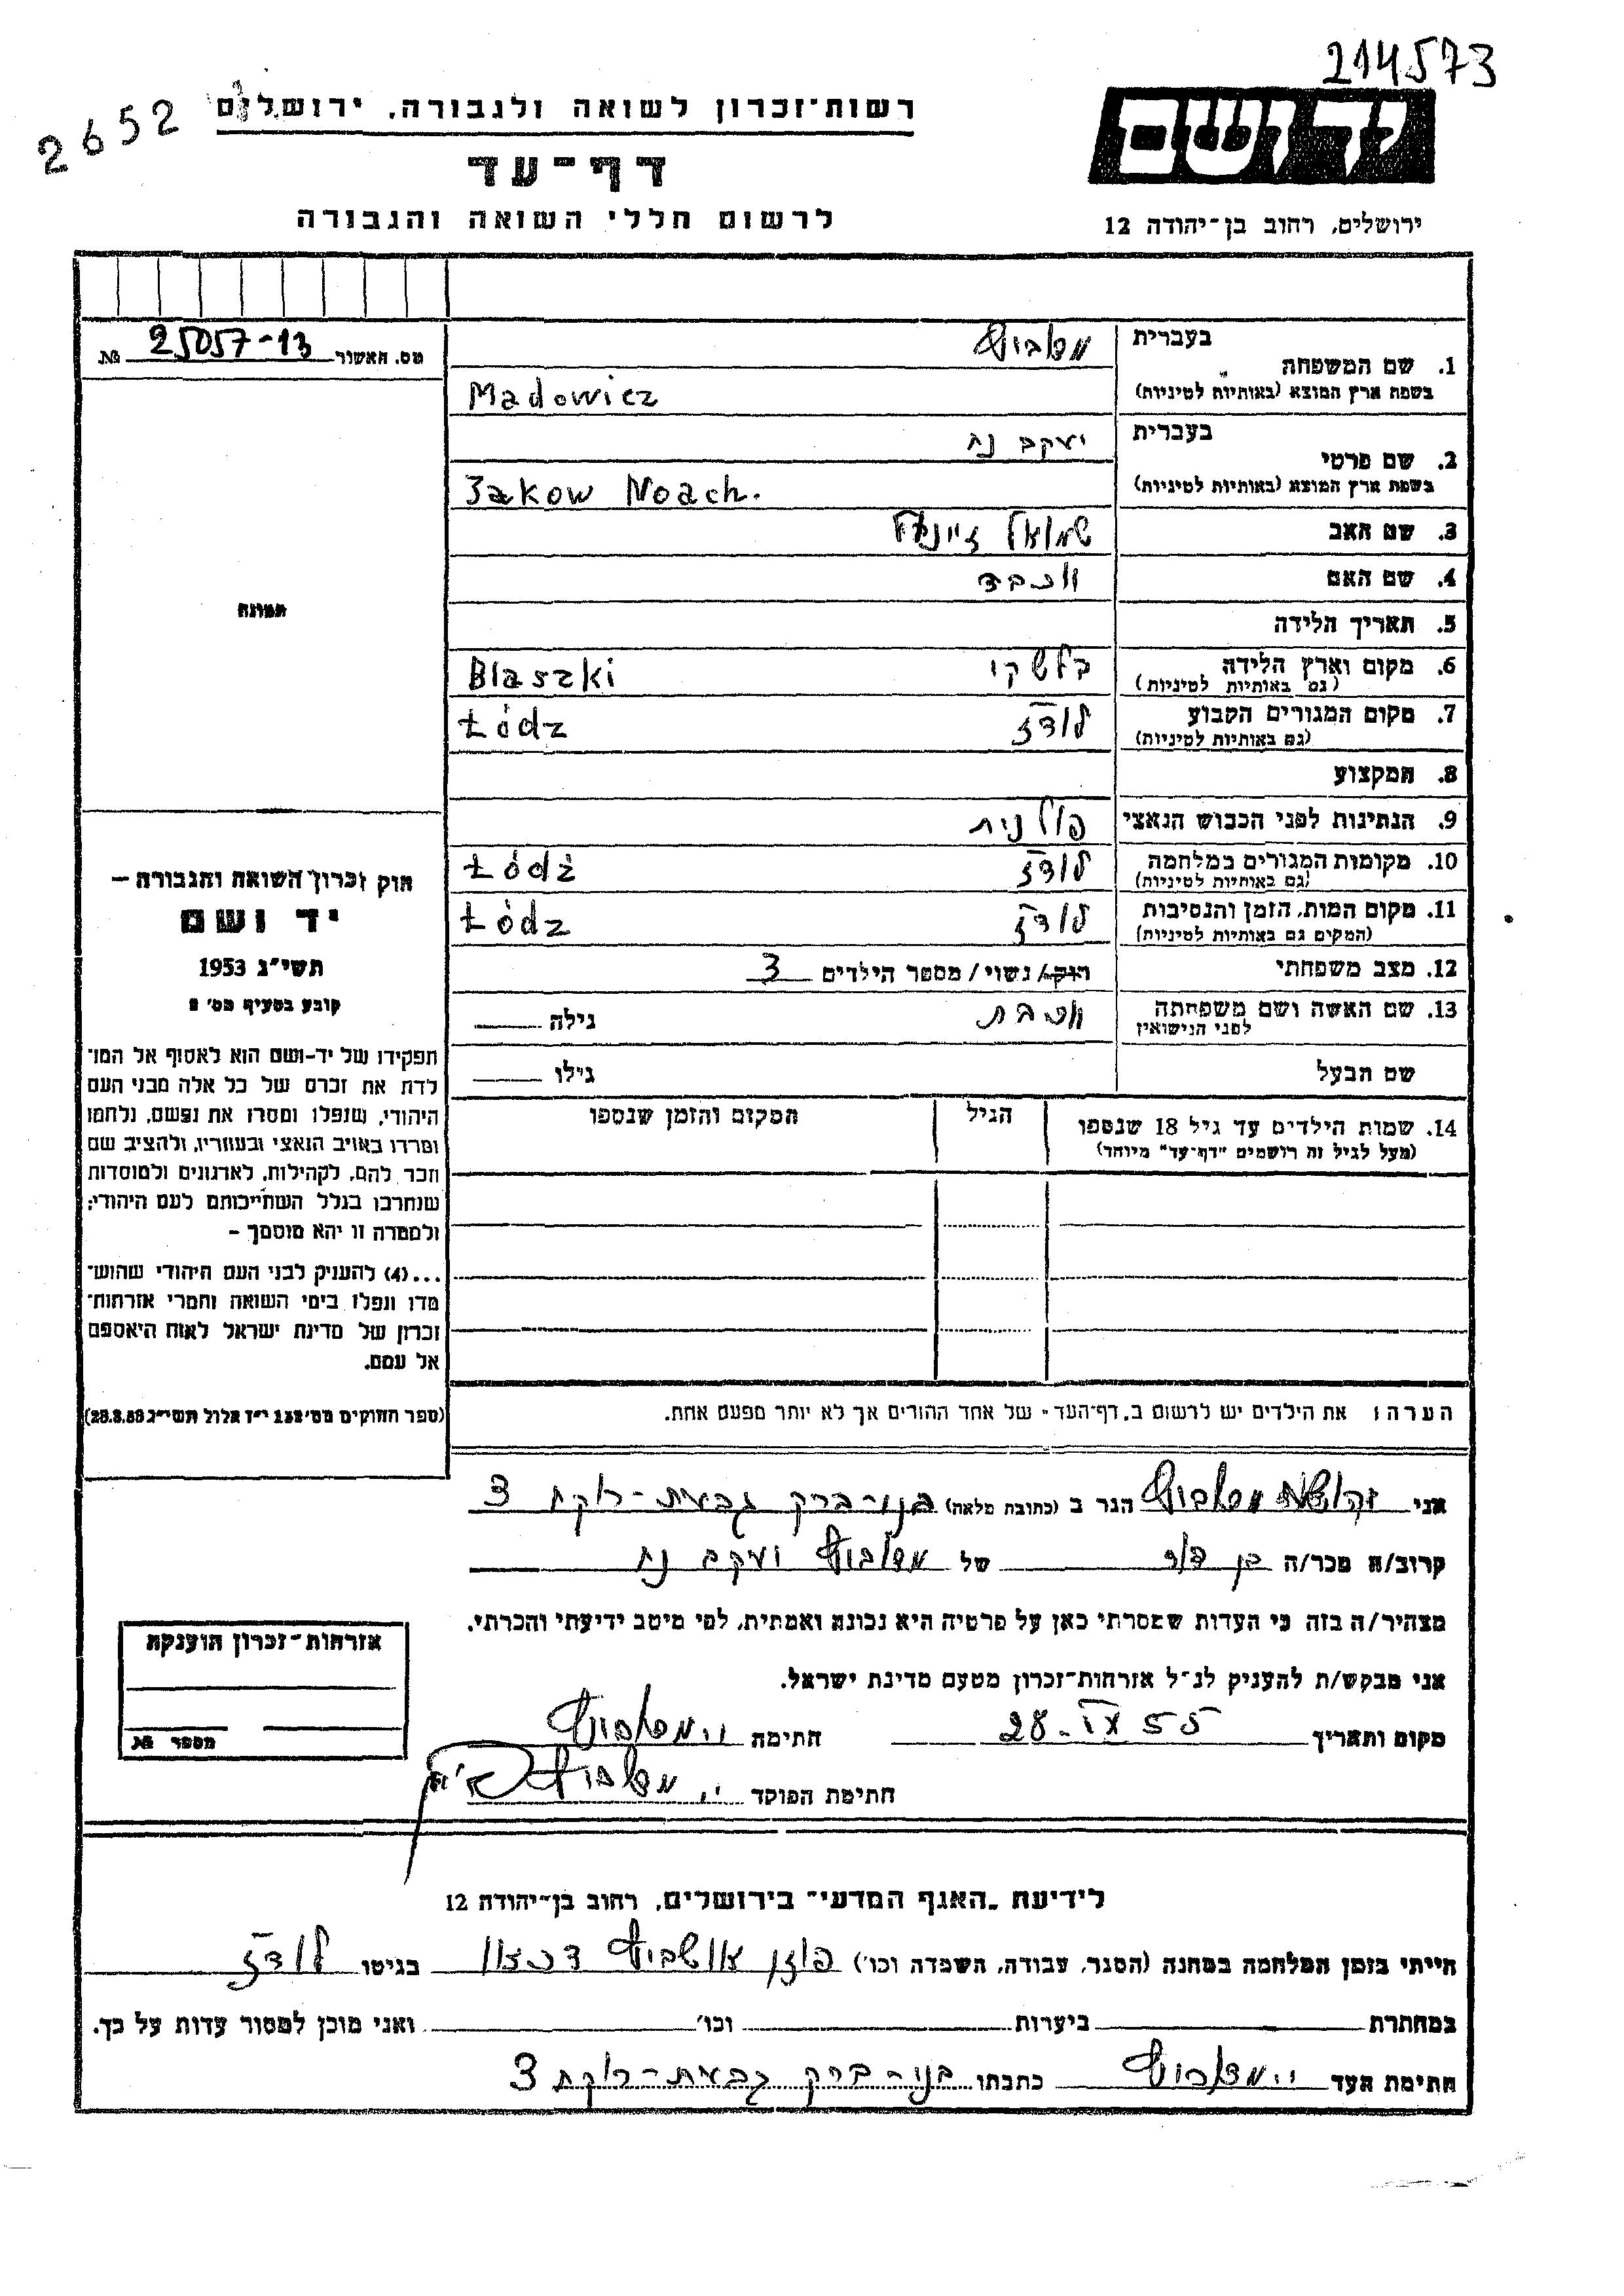 214573
2652
רשות־זכרון לשואה ולגבורה, ירושלים
דף־עד
לרשום חללי השואה והגבורה
יד ושם
ירושלים, רחוב בן־יהודה 12
מס. האשור 25057-13 №
תמונה
חוק זכרון השואה והגבורה –
יד ושם
תשי"ג 1953
קובע בסעיף מס' 2
תפקידו של יד-ושם הוא לאסוף אל המו־
לדת את זכרם של כל אלה מבני העם
היהודי, שנפלו ומסרו את נפשם, נלחמו
ומרדו באויב הנאצי ובעוזריו, ולהציב שם
וזכר להם, לקהילות, לארגונים ולמוסדות
שנחרבו בגלל השתייכותם לעם היהודי;
ולמטרה זו יהא מוסמך –
...(4) להעניק לבני העם היהודי שהוש־
מדו ונפלו בימי השואה והמרי אזרחות־
זכרון של מדינת ישראל לאות היאספם
אל עמם.
(ספר החוקים מס' 132 י"ז אלול תשי"ג 28.8.53)
1. שם המשפחה
בעברית
בשפת ארץ המוצא (באותיות לטיניות) Madowicz
2. שם פרטי
בעברית יעקב נח
בשפת ארץ המוצא (באותיות לטיניות) Jakow Noach.
3. שם האב שמואל
4. שם האם
5. תאריך הלידה
6. מקום וארץ הלידה בלשקי Blaszki
(גם באותיות לטיניות)
7. מקום המגורים הקבוע לודז Łódz
(גם באותיות לטיניות)
8. המקצוע
9. הנתינות לפני הכבוש הנאצי פולנית
10. מקומות המגורים במלחמה לודז Łódż
(גם באותיות לטיניות)
11. מקום המות, הזמן והנסיבות לודז Łódz
(המקום גם באותיות לטיניות)
12. מצב משפחתי רוק/ נשוי/ מספר הילדים 3
13. שם האשה ושם משפחתה גילה
לפני הנישואין
שם הבעל גילו
14. שמות הילדים עד גיל 18 שנספו הגיל המקום והזמן שנספו
(מעל לגיל זה רושמים "דף-עד" מיוחד)
הערה: את הילדים יש לרשום ב"דף־העד" של אחד ההורים אך לא יותר מפעם אחת.
אני הגר ב (כתובת מלאה) בני-ברק גבעת-רוקח 3
קרוב/ה מכר/ה בן דוד של יעקב נח
מצהיר/ה בזה כי העדות שמסרתי כאן על פרטיה היא נכונה ואמתית, לפי מיטב ידיעתי והכרתי.
אני מבקש/ת להעניק לנ"ל אזרחות־זכרון מטעם מדינת ישראל.
מקום ותאריך 28.IX 55 חתימה
חתימת הפוקד
אזרחות־זכרון הוענקה
מספר №
לידיעת "האגף המדעי" בירושלים, רחוב בן־יהודה 12
הייתי בזמן המלחמה במחנה (הסגר, עבודה, השמדה וכו') פוזן אושביץ דכאו בגיטו לודז
במחתרת ביערות וכו' ואני מוכן למסור עדות על כך.
חתימת העד כתבתו בני-ברק גבעת-רוקח 3